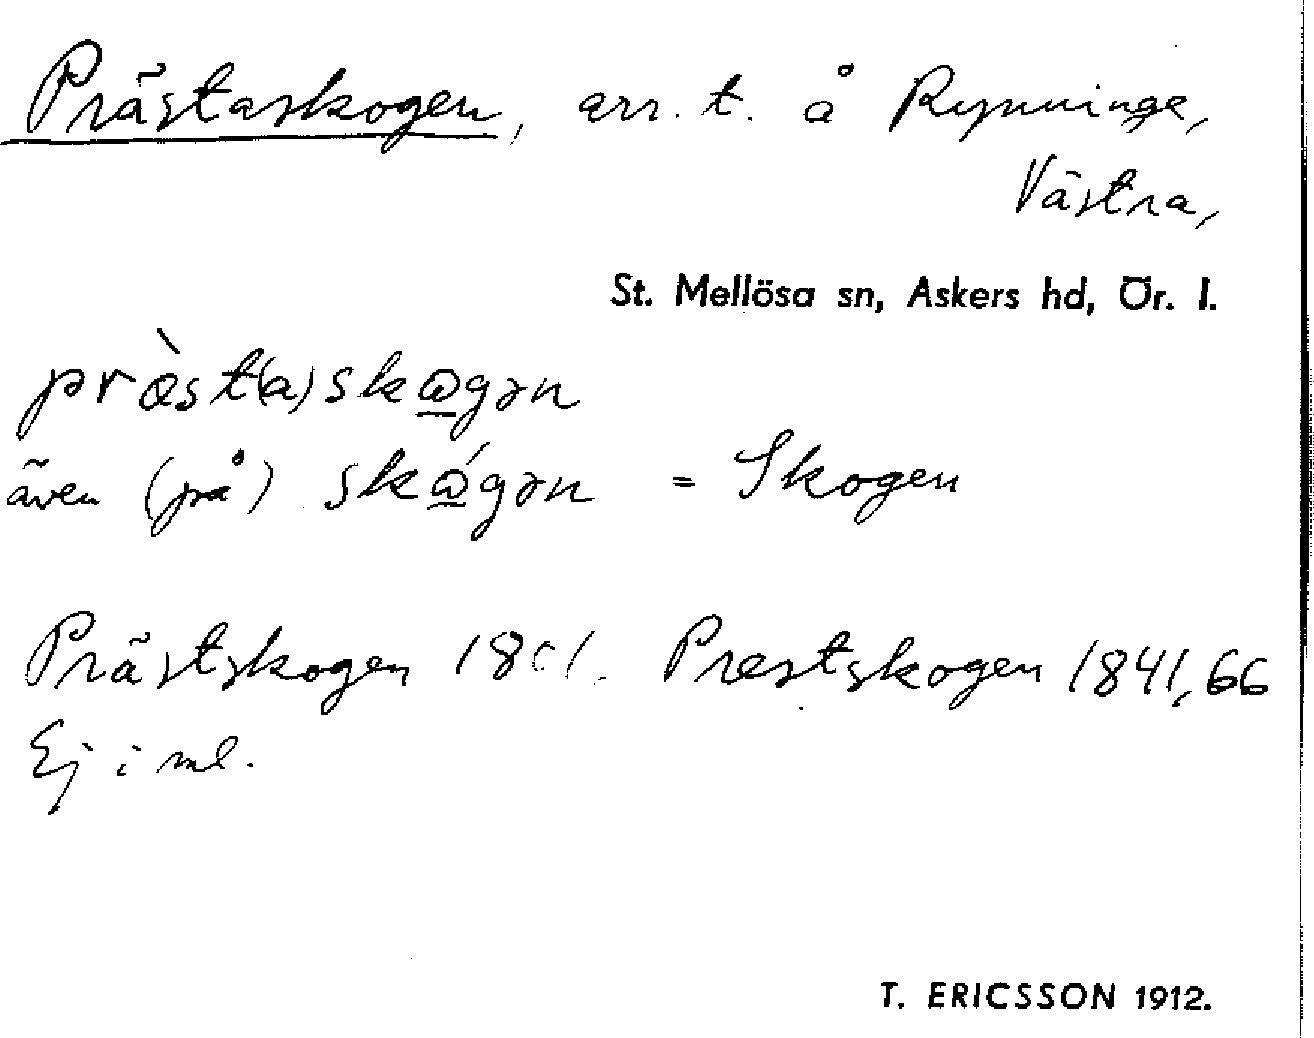 Prästaskogen, arr. t. å Rynninge,
Västra,
St. Mellösa sn, Askers hd, Ör. l.
præ̀st(a)skωgən
även (på) skώgən = Skogen
Prästskogen 1801. Prestskogen 1841, 66
Ej i ml.
T. ERICSSON 1912.